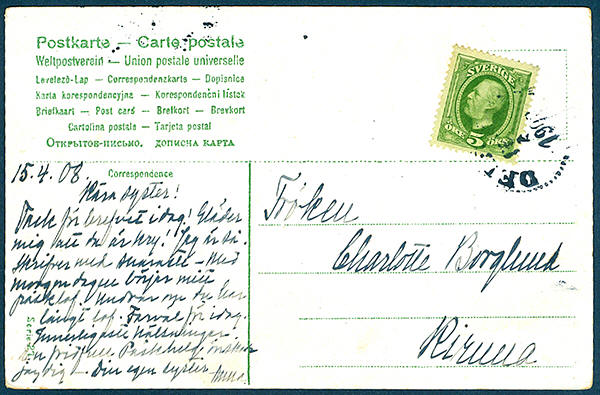 Postkarte — Carte postale
Weltpostverein — Union postale universelle
Levelező-Lap — Correspondenzkarte — Dopisnice
Karta korespondencyjna — Korespondenční lístek
Briefkaart — Post card — Brefkort — Brevkort
Cartolina postale — Tarjeta postal
Открытое-письмо. дописна карта
SVERIGE
ÖRE 5 ÖRE
DET
15.4.08.
Correspondence
Kära syster!
Tack för brefvet i dag! Gläder
mig att du är kry! Jag är så.
Skrifver med snaraste — Med
morgondagen börjar mitt
påsklof. Undrar om du har
långt lof. Farväl för i dag.
Innerligaste hälsningar
En fridfull Påskhelg önskar
jag dig — Din egen syster
Fröken
Charlotte Borglund
Kiruna
Serie